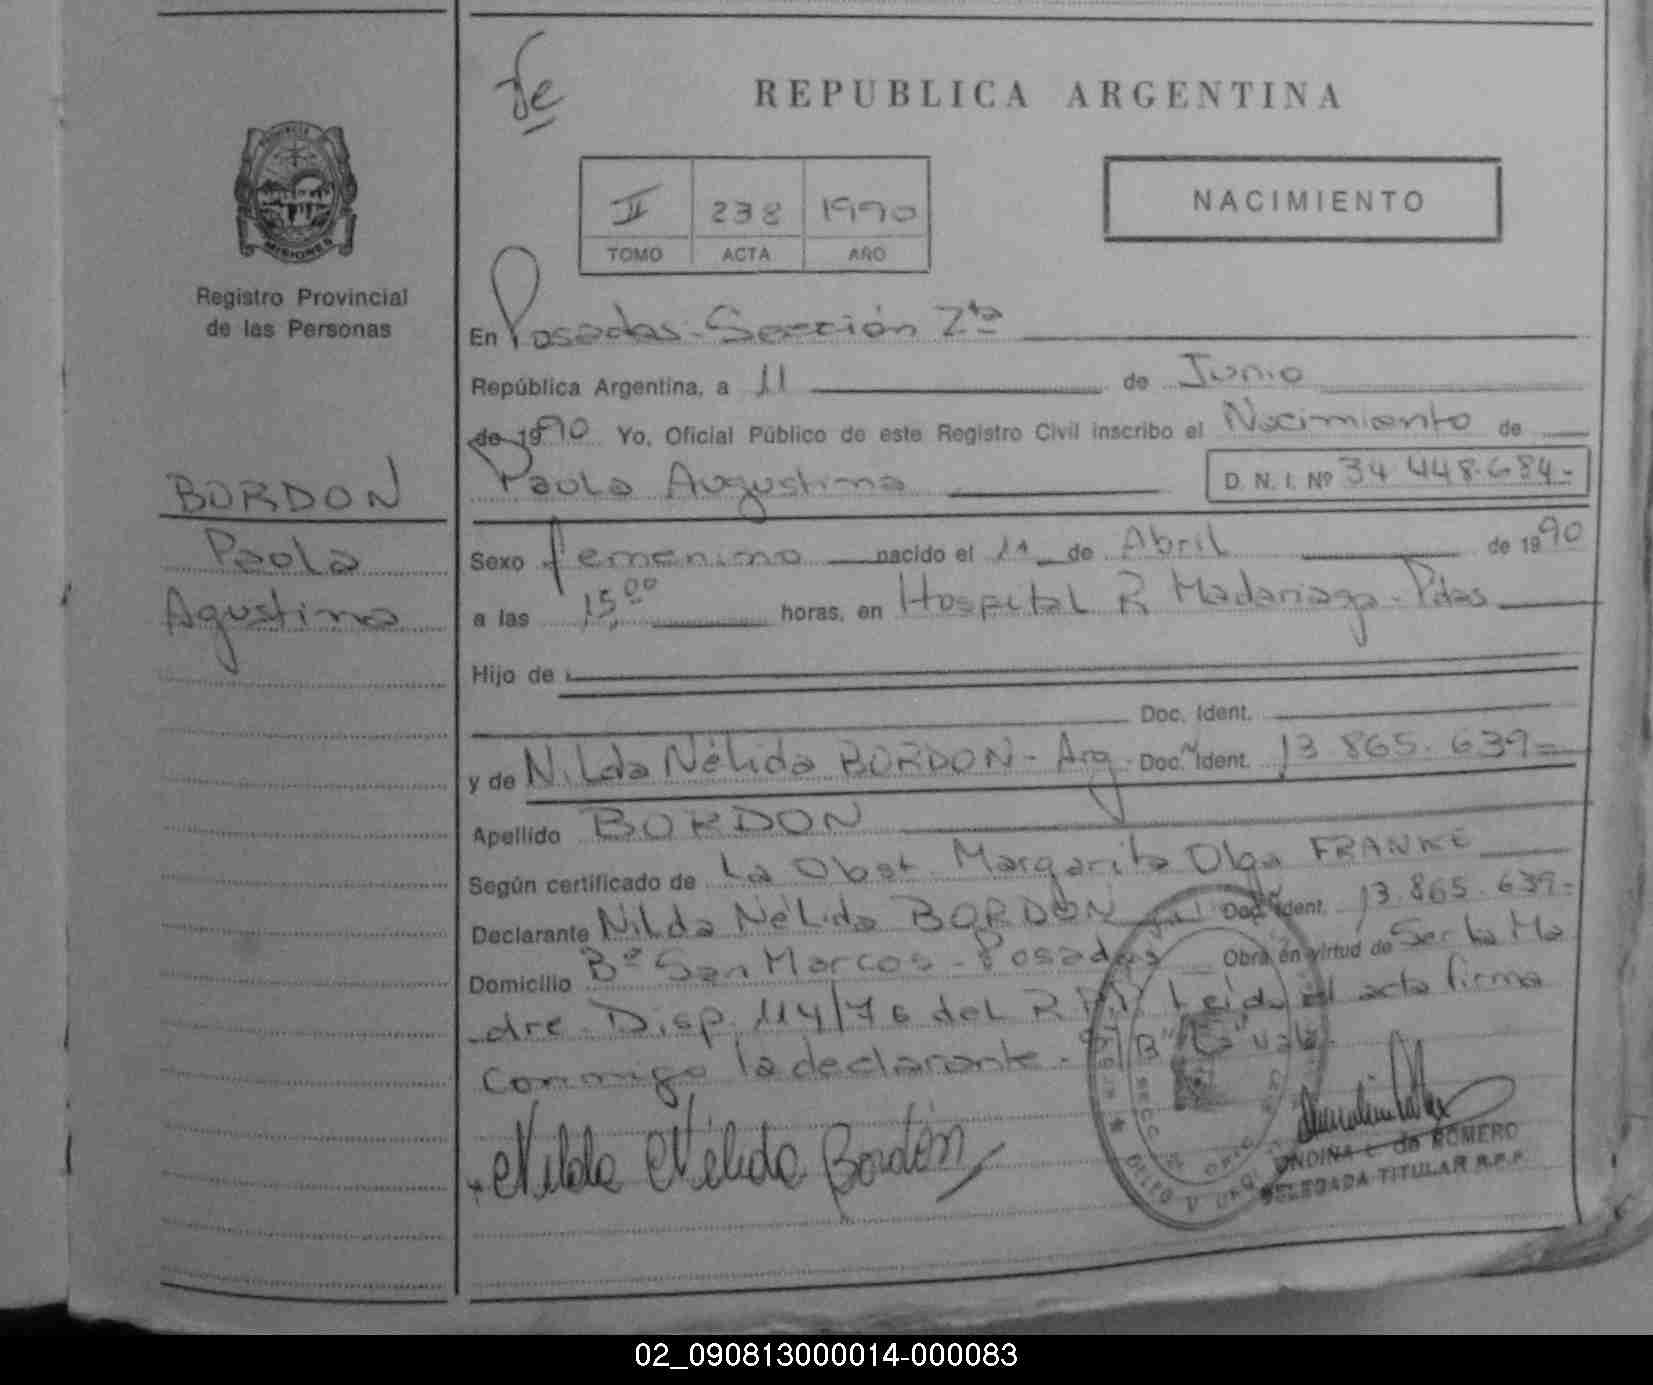 de
REPUBLICA ARGENTINA
II 238 1990
TOMO ACTA AÑO
NACIMIENTO
MISIONES
Registro Provincial
de las Personas
En Posadas - Sección 2ta
República Argentina, a 11 de Junio
de 1990 Yo, Oficial Público de este Registro Civil inscribo el Nacimiento de
Paola Augustina D. N. I. Nº 34 448.684-
BORDON
Paola
Agustina
Sexo femenino nacido el 11 de Abril de 1990
a las 15,00 horas, en Hospital R Madariaga - Pdas
Hijo de
Doc. Ident.
y de Nilda Nélida BORDON - Arg. Doc. Ident. 13 865.639=
Apellido BORDON
Según certificado de La Obst. Margarita Olga FRANKE
Declarante Nilda Nélida BORDON Doc. Ident. 13.865.639-
Domicilio Bº San Marcos - Posadas Obra en virtud de Ser la Ma
dre. Disp. 114/76 del R.P.P. Leida el acta firma
conmigo la declarante.
Nilda Nélida Bordón
ONDINA C de ROMERO
DELEGADA TITULAR R.P.P.
02_090813000014-000083